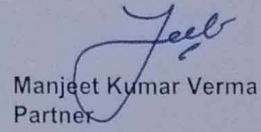 Manjeet Kumar Verma
Partner